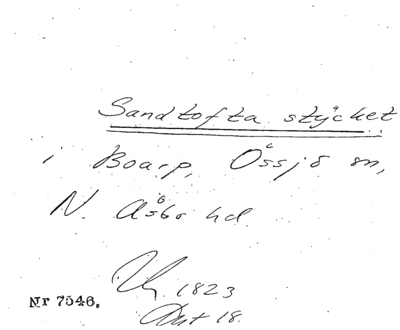 Sandtofta stycket
i Boarp, Össjö sn,
N. Åsbo hd.
1823
18.
Nr 7546.